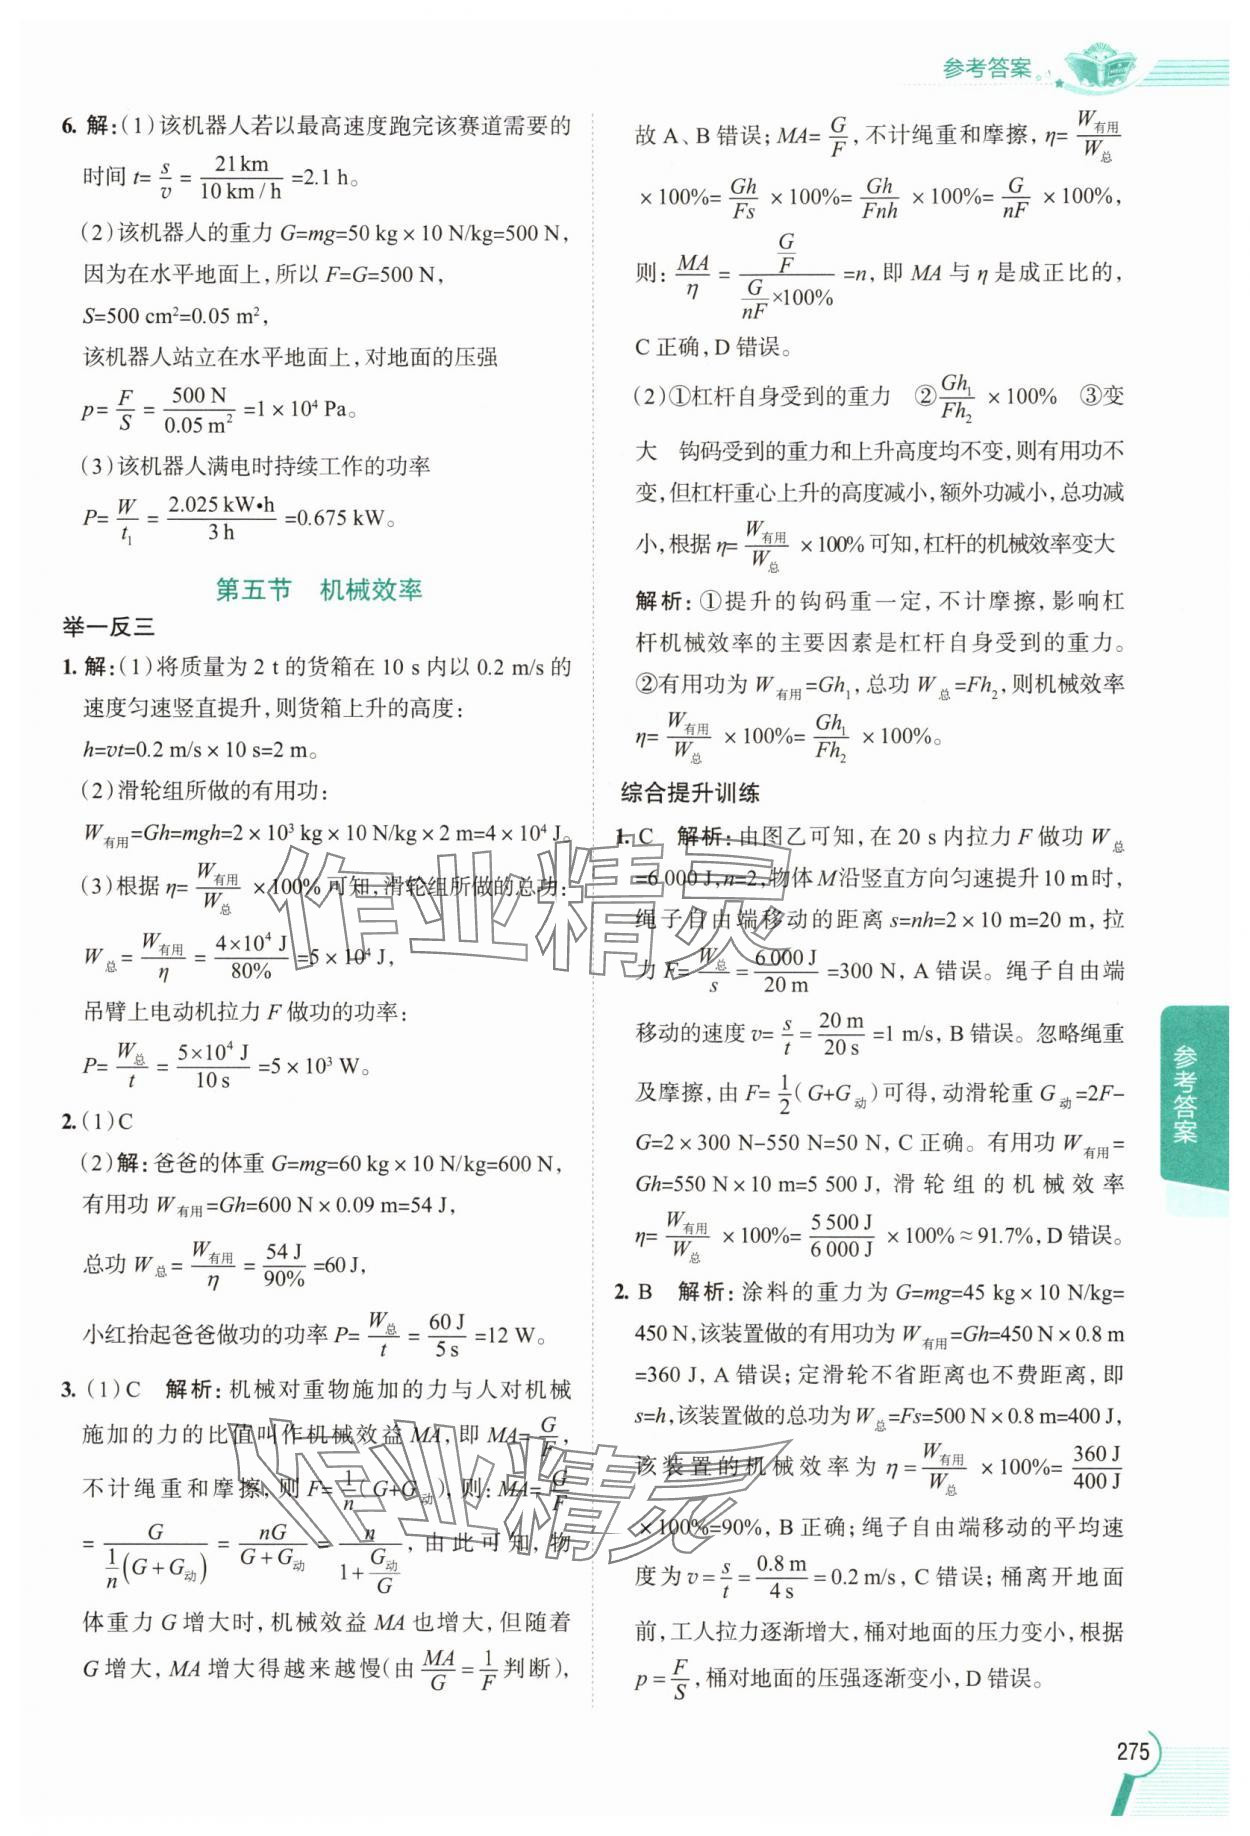 参考答案
6. 解:(1)该机器人若以最高速度跑完该赛道需要的
时间 t= s/v = 21 km/10 km/h =2.1 h。
(2)该机器人的重力 G=mg=50 kg×10 N/kg=500 N,
因为在水平地面上,所以 F=G=500 N,
S=500 cm²=0.05 m²,
该机器人站立在水平地面上,对地面的压强
p= F/S = 500 N/0.05 m² =1×10⁴ Pa。
(3)该机器人满电时持续工作的功率
P= W/t₁ = 2.025 kW•h/3 h =0.675 kW。
第五节 机械效率
举一反三
1. 解:(1)将质量为 2 t 的货箱在 10 s 内以 0.2 m/s 的
速度匀速竖直提升,则货箱上升的高度:
h=vt=0.2 m/s×10 s=2 m。
(2)滑轮组所做的有用功:
W有用=Gh=mgh=2×10³ kg×10 N/kg×2 m=4×10⁴ J。
(3)根据 η= W有用/W总 ×100%可知,滑轮组所做的总功:
W总= W有用/η = 4×10⁴ J/80% =5×10⁴ J,
吊臂上电动机拉力 F 做功的功率:
P= W总/t = 5×10⁴ J/10 s =5×10³ W。
2. (1)C
(2)解:爸爸的体重 G=mg=60 kg×10 N/kg=600 N,
有用功 W有用=Gh=600 N×0.09 m=54 J,
总功 W总= W有用/η = 54 J/90% =60 J,
小红抬起爸爸做功的功率 P= W总/t = 60 J/5 s =12 W。
3. (1)C 解析:机械对重物施加的力与人对机械
施加的力的比值叫作机械效益 MA,即 MA= G/F,
不计绳重和摩擦,则 F= 1/n (G+G动),则:MA= G/F
= G/(1/n(G+G动)) = nG/(G+G动) = n/(1+G动/G),由此可知,物
体重力 G 增大时,机械效益 MA 也增大,但随着
G 增大,MA 增大得越来越慢(由 MA/G = 1/F 判断),
故 A、B 错误;MA= G/F,不计绳重和摩擦,η= W有用/W总
×100%= Gh/Fs ×100%= Gh/Fnh ×100%= G/nF ×100%,
则: MA/η = (G/F)/(G/nF×100%) =n,即 MA 与 η 是成正比的,
C 正确,D 错误。
(2)①杠杆自身受到的重力 ② Gh₁/Fh₂ ×100% ③变
大 钩码受到的重力和上升高度均不变,则有用功不
变,但杠杆重心上升的高度减小,额外功减小,总功减
小,根据 η= W有用/W总 ×100%可知,杠杆的机械效率变大
解析:①提升的钩码重一定,不计摩擦,影响杠
杆机械效率的主要因素是杠杆自身受到的重力。
②有用功为 W有用=Gh₁,总功 W总=Fh₂,则机械效率
η= W有用/W总 ×100%= Gh₁/Fh₂ ×100%。
综合提升训练
1. C 解析:由图乙可知,在 20 s 内拉力 F 做功 W总
=6 000 J,n=2,物体 M 沿竖直方向匀速提升 10 m时,
绳子自由端移动的距离 s=nh=2×10 m=20 m,拉
力 F= W总/s = 6 000 J/20 m =300 N,A 错误。绳子自由端
移动的速度 v= s/t = 20 m/20 s =1 m/s,B 错误。忽略绳重
及摩擦,由 F= 1/2 (G+G动)可得,动滑轮重 G动=2F-
G=2×300 N-550 N=50 N,C 正确。有用功 W有用=
Gh=550 N×10 m=5 500 J,滑轮组的机械效率
η= W有用/W总 ×100%= 5 500 J/6 000 J ×100%≈91.7%,D 错误。
2. B 解析:涂料的重力为 G=mg=45 kg×10 N/kg=
450 N,该装置做的有用功为 W有用=Gh=450 N×0.8 m
=360 J,A 错误;定滑轮不省距离也不费距离,即
s=h,该装置做的总功为 W总=Fs=500 N×0.8 m=400 J,
该装置的机械效率为 η= W有用/W总 ×100%= 360 J/400 J
×100%=90%,B 正确;绳子自由端移动的平均速
度为 v= s/t = 0.8 m/4 s =0.2 m/s,C 错误;桶离开地面
前,工人拉力逐渐增大,桶对地面的压力变小,根据
p= F/S,桶对地面的压强逐渐变小,D 错误。
参考答案
275
作业精灵
作业精灵